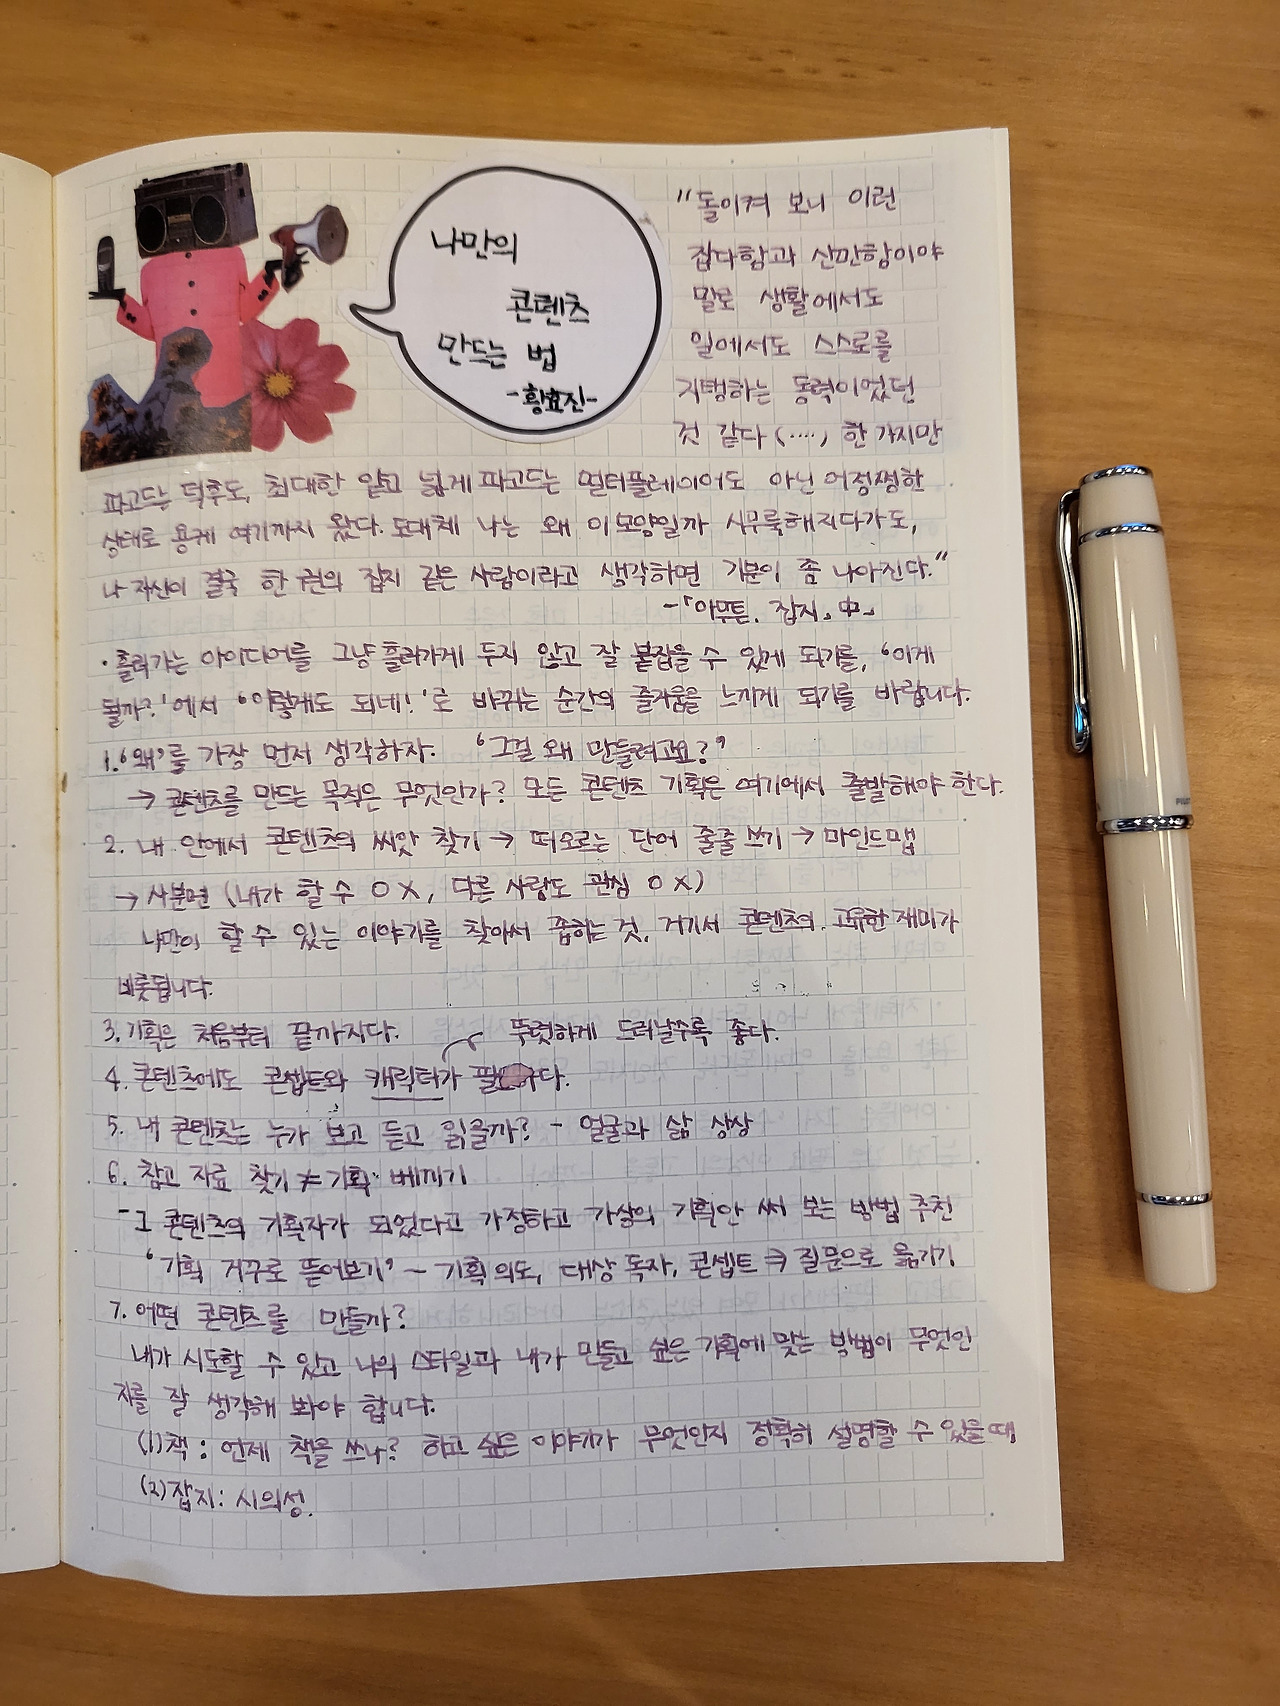 나만의
콘텐츠
만드는 법
-황효진-
"돌이켜 보니 이런
잡다함과 산만함이야
말로 생활에서도
일에서도 스스로를
지탱하는 동력이었던
것 같다 (····, 한 가지만
파고드는 덕후도, 최대한 얕고 넓게 파고드는 멀티플레이어도 아닌 어정쩡한
상태로 용케 여기까지 왔다. 도대체 나는 왜 이 모양일까 시무룩해지다가도,
나 자신이 결국 한 권의 잡지 같은 사람이라고 생각하면 기분이 좀 나아진다."
-『아무튼, 잡지』 中
· 흘러가는 아이디어를 그냥 흘러가게 두지 않고 잘 붙잡을 수 있게 되기를, '이게
될까?'에서 '이렇게도 되네!'로 바뀌는 순간의 즐거움을 느끼게 되기를 바랍니다.
1. '왜'를 가장 먼저 생각하자. '그걸 왜 만들려고요?'
→ 콘텐츠를 만드는 목적은 무엇인가? 모든 콘텐츠 기획은 여기에서 출발해야 한다.
2. 내 안에서 콘텐츠의 씨앗 찾기 → 떠오르는 단어 줄줄 쓰기 → 마인드맵
→ 사분면 (내가 할 수 O X, 다른 사람도 관심 O X)
나만이 할 수 있는 이야기를 찾아서 좁히는 것, 거기서 콘텐츠의 고유한 재미가
비롯됩니다.
3. 기획은 처음부터 끝까지다.
뚜렷하게 드러날수록 좋다.
4. 콘텐츠에도 콘셉트와 캐릭터가 필요하다.
5. 내 콘텐츠는 누가 보고 듣고 읽을까? - 얼굴과 삶 상상
6. 참고 자료 찾기 ≠ 기획 베끼기
- 그 콘텐츠의 기획자가 되었다고 가정하고 가상의 기획안 써 보는 방법 추천
'기획 거꾸로 뜯어보기' - 기획 의도, 대상 독자, 콘셉트 → 질문으로 옮기기
7. 어떤 콘텐츠를 만들까?
내가 시도할 수 있고 나의 스타일과 내가 만들고 싶은 기획에 맞는 방법이 무엇인
지를 잘 생각해 봐야 합니다.
(1) 책 : 언제 책을 쓰나? 하고 싶은 이야기가 무엇인지 정확히 설명할 수 있을 때
(2) 잡지 : 시의성.